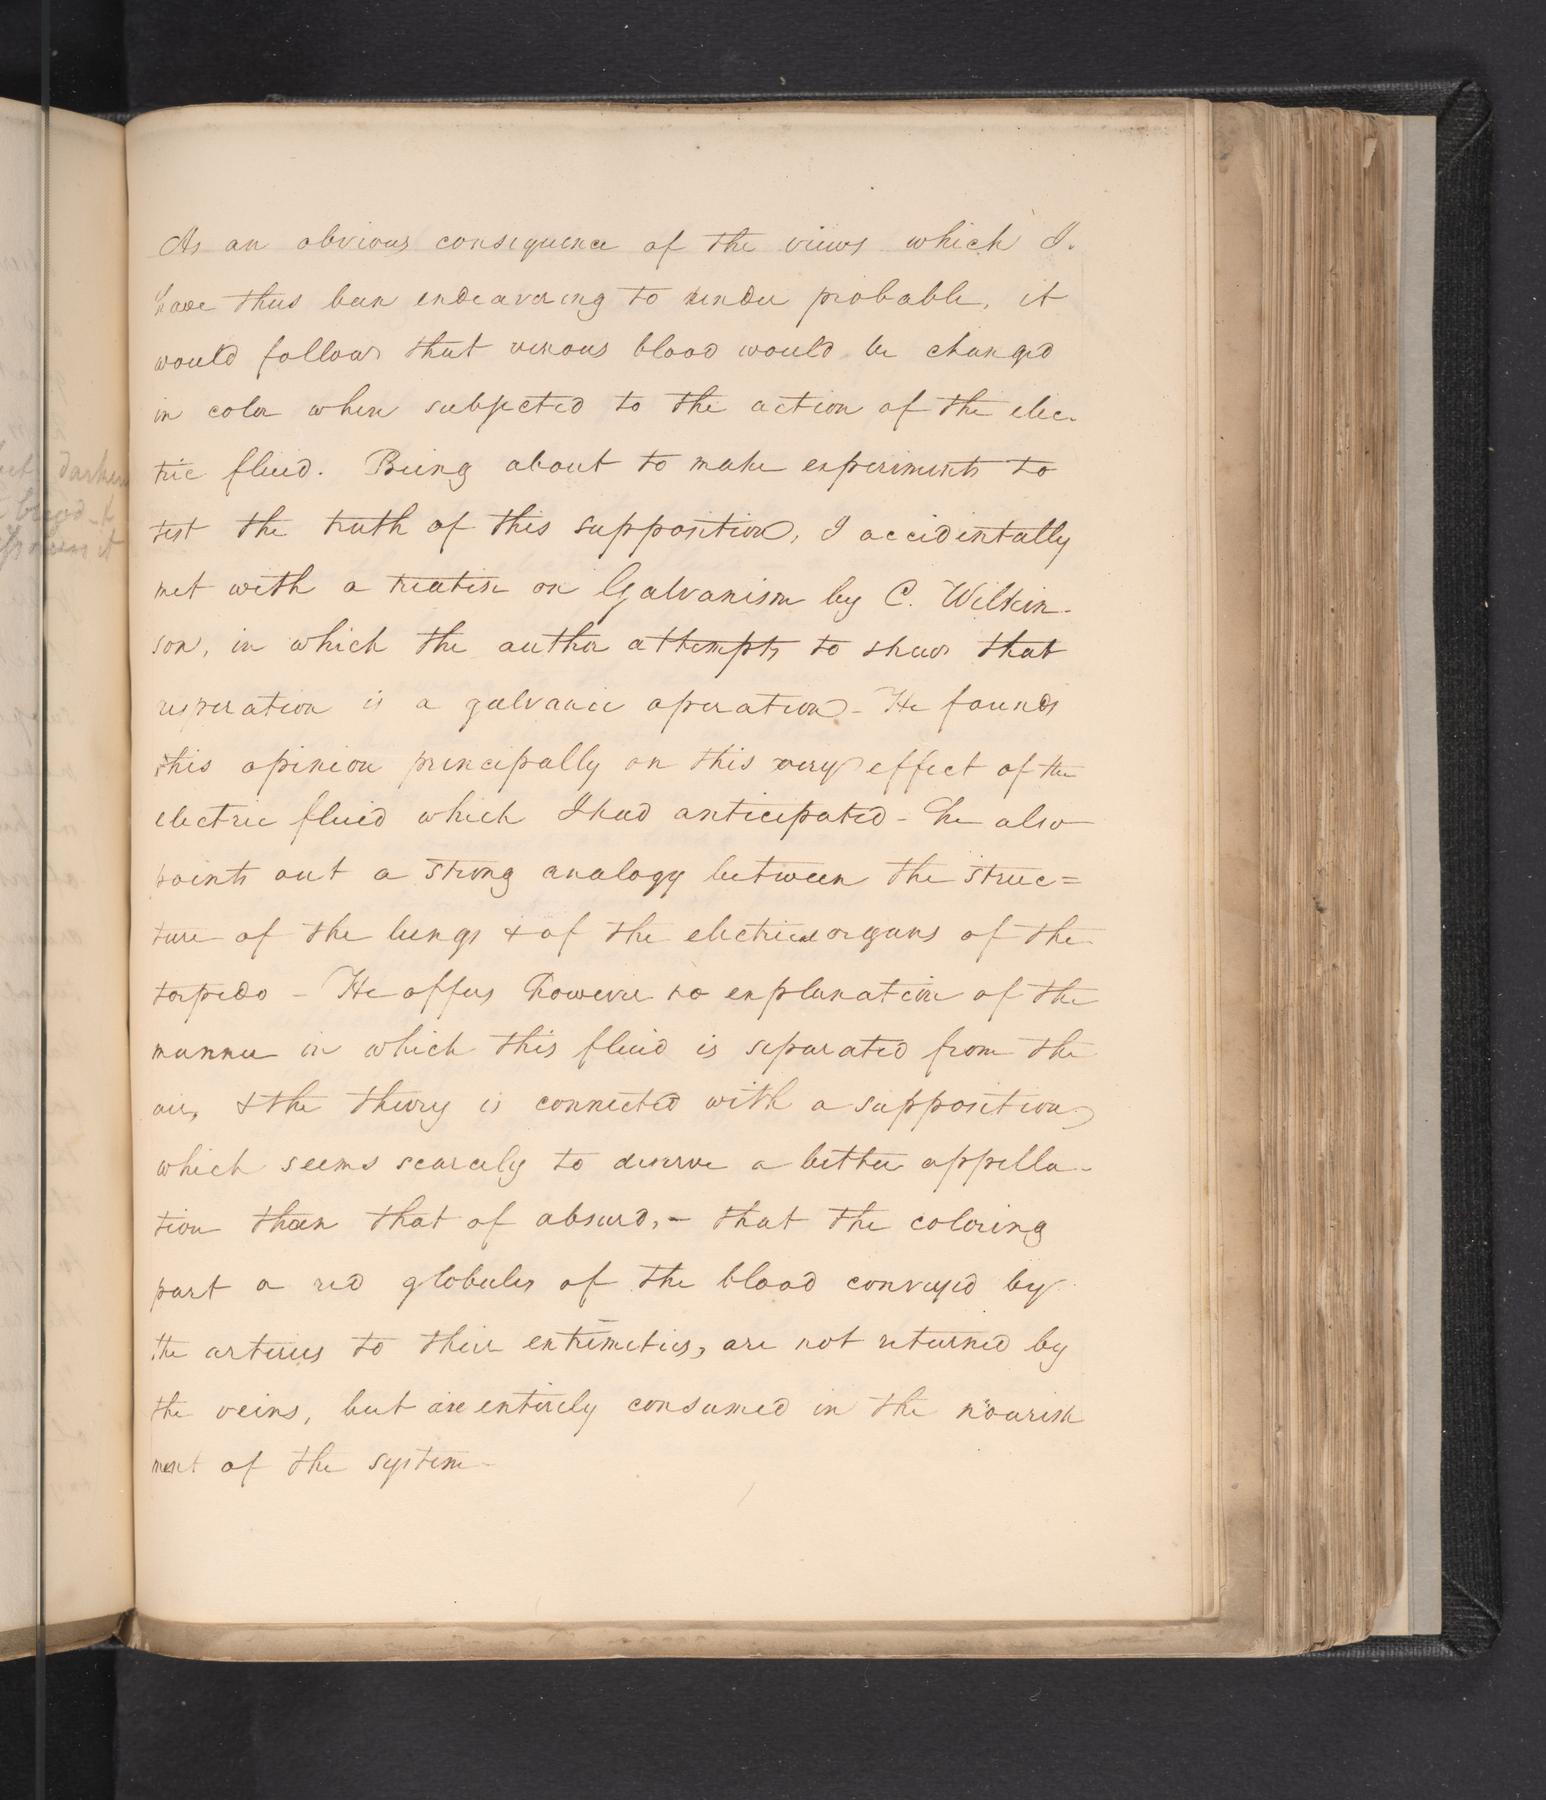 As an obvious consequence of the views which I
have thus been endeavoring to render probable, it
would follow that venous blood would be changed
in color when subjected to the action of the elec-
tric fluid. Being about to make experiments to
test the truth of this supposition, I accidentally
met with a treatise on Galvanism by C. Wilkin-
son, in which the author attempts to shew that
respiration is a galvanic operation - He founds
this opinion principally on this very effect of the
electric fluid which I had anticipated - he also
points out a strong analogy between the struc=
ture of the lungs & of the electrical organs of the
torpedo - He offers however no explanation of the
manner in which this fluid is separated from the
air, & the theory is connected with a supposition
which seems scarcely to deserve a better appella-
tion than that of absurd, - that the coloring
part or red globules of the blood conveyed by
the arteries to their extremities, are not returned by
the veins, but are entirely consumed in the nourish
ment of the system -
darken
blood